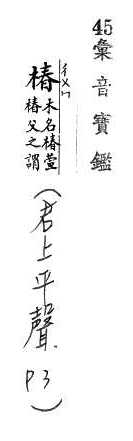 45彙音寶鑑
椿
ㄔㄨㄣ
木名椿萱
椿父之謂
(君上平聲. P3)